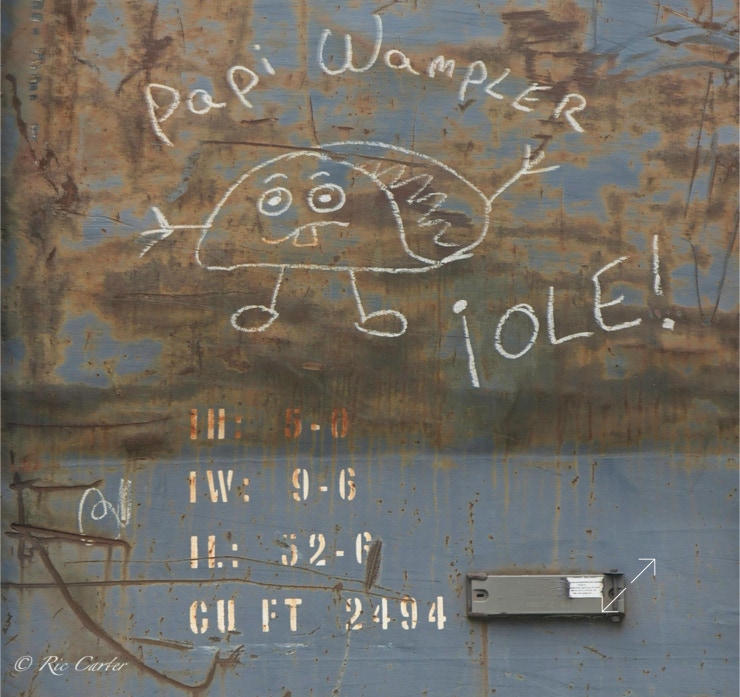 Papi Wampler
¡OLE!
IH: 5-0
IW: 9-6
IL: 52-6
CU FT 2494
© Ric Carter